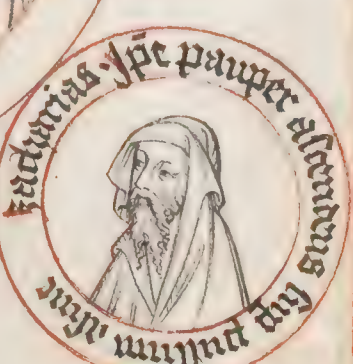 zacharias · Ip̄e pauper ascendens sup̱ pullum asine